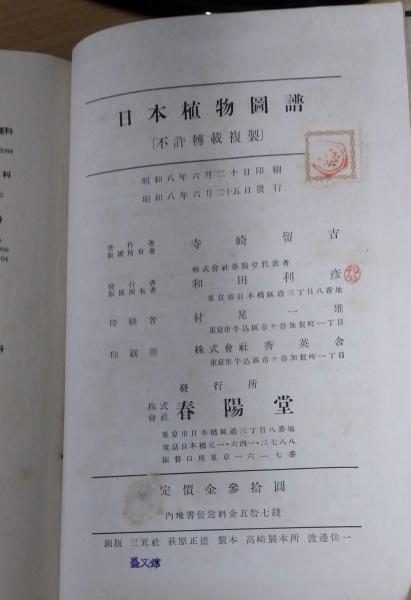 日本植物圖譜
〔不許轉載複製〕
昭和八年六月二十日印刷
昭和八年六月二十五日發行
著作者
版權所有者
寺崎留吉
株式會社春陽堂代表者
發行者
版權所有者
和田利彦
東京市日本橋區通三丁目八番地
印刷者 村尾一雄
東京市牛込區市ケ谷加賀町一丁目
印刷所 株式會社 秀英舍
東京市牛込區市ケ谷加賀町一丁目
發行所
株式會社 春陽堂
東京市日本橋區通三丁目八番地
電話日本橋五一・六四一・三七八八
振替口座東京一六一七番
定價金參拾圓
內地書留送料金五拾七錢
圖版 三元社 萩原正德 製本 高崎製本所 渡邊信一
科
科